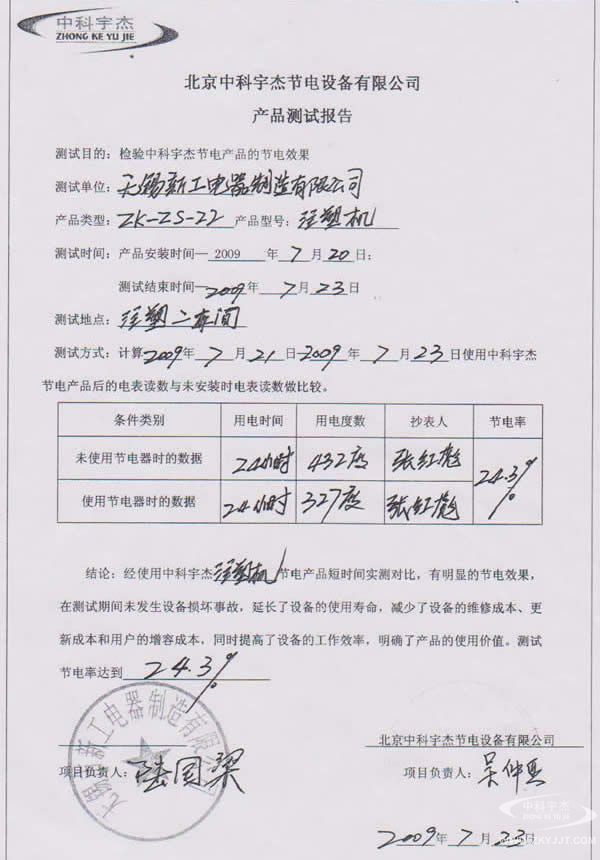 中科宇杰
ZHONG KE YU JIE
北京中科宇杰节电设备有限公司
产品测试报告
测试目的：检验中科宇杰节电产品的节电效果
测试单位：无锡新工电器制造有限公司
产品类型：ZK-ZS-22 产品型号：注塑机
测试时间：产品安装时间— 2009 年 7 月 20 日；
测试结束时间—2009年 7 月 23 日
测试地点：注塑二车间
测试方式：计算2009年 7 月 21 日-2009年 7 月 23 日使用中科宇杰
节电产品后的电表读数与未安装时电表读数做比较。
条件类别 用电时间 用电度数 抄表人 节电率
未使用节电器时的数据 24小时 432度 张红彪 24.3%
使用节电器时的数据 24小时 327度 张红彪
结论：经使用中科宇杰注塑机节电产品短时间实测对比，有明显的节电效果，
在测试期间未发生设备损坏事故，延长了设备的使用寿命，减少了设备的维修成本、更
新成本和用户的增容成本，同时提高了设备的工作效率，明确了产品的使用价值。测试
节电率达到 24.3%
无锡新工电器制造有限公司
北京中科宇杰节电设备有限公司
项目负责人：陆国梁 项目负责人：吴仲
2009 年 7 月 23日
中科宇杰
WWW.ZKYJJT.COM